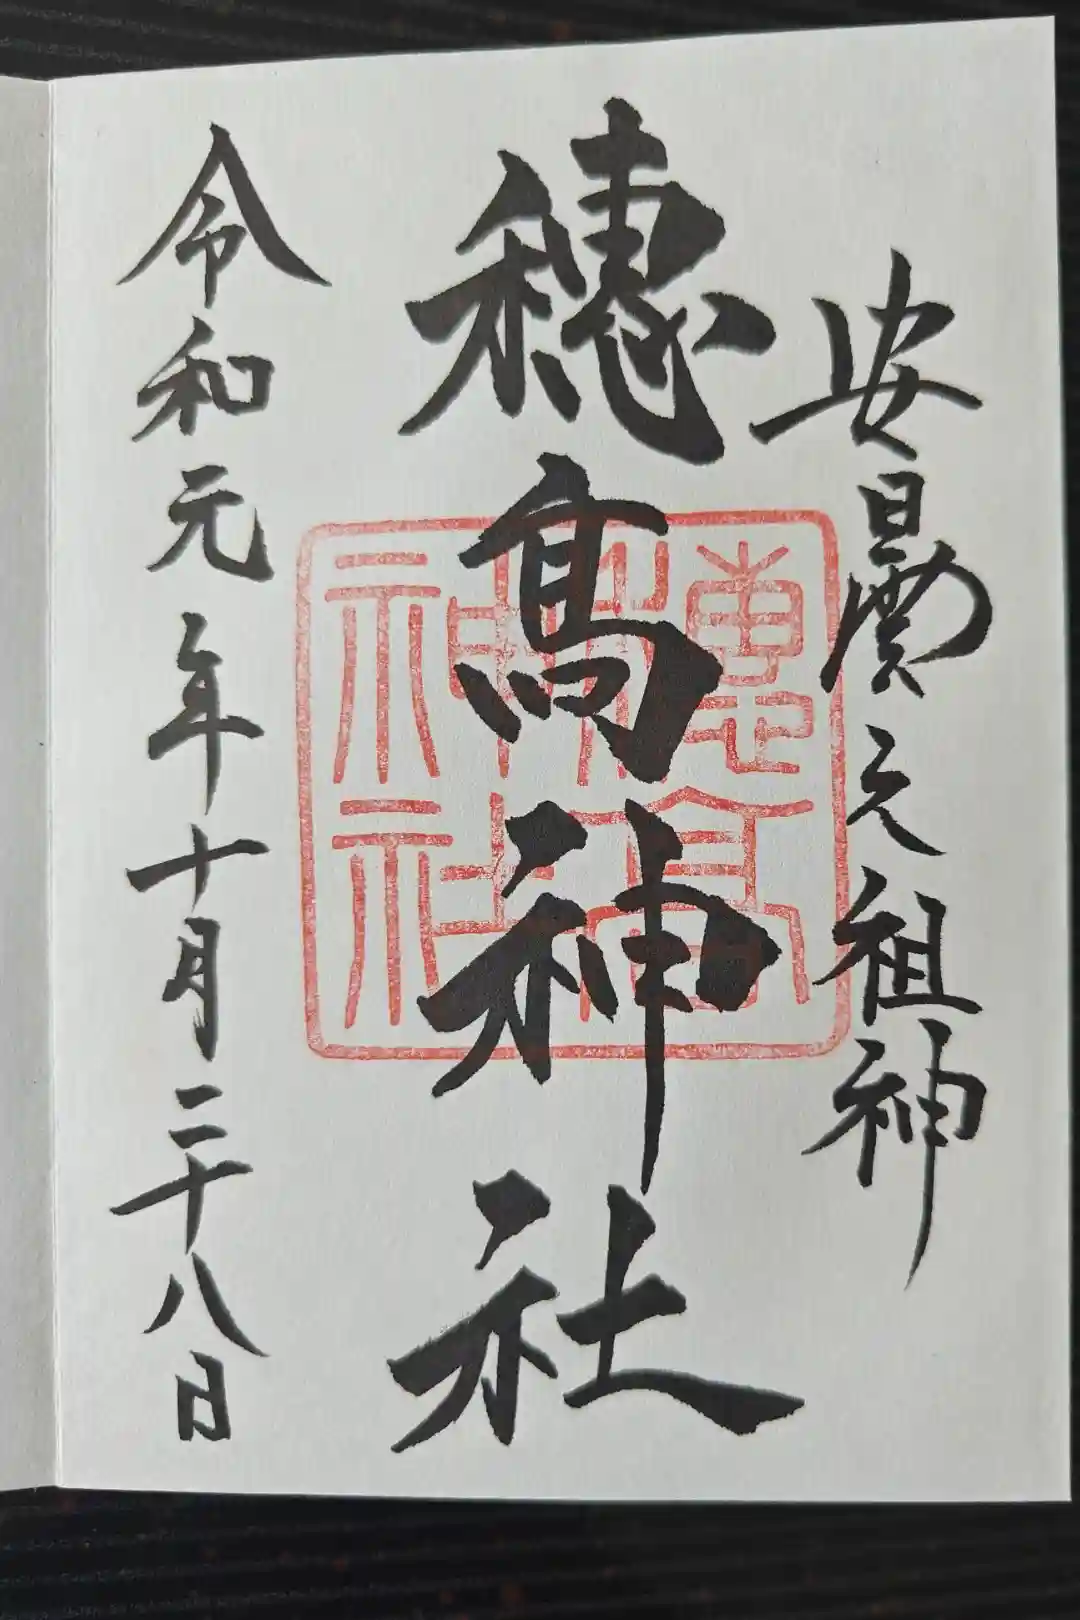 安曇之祖神
穂髙神社
穂髙神社
令和元年十月二十八日